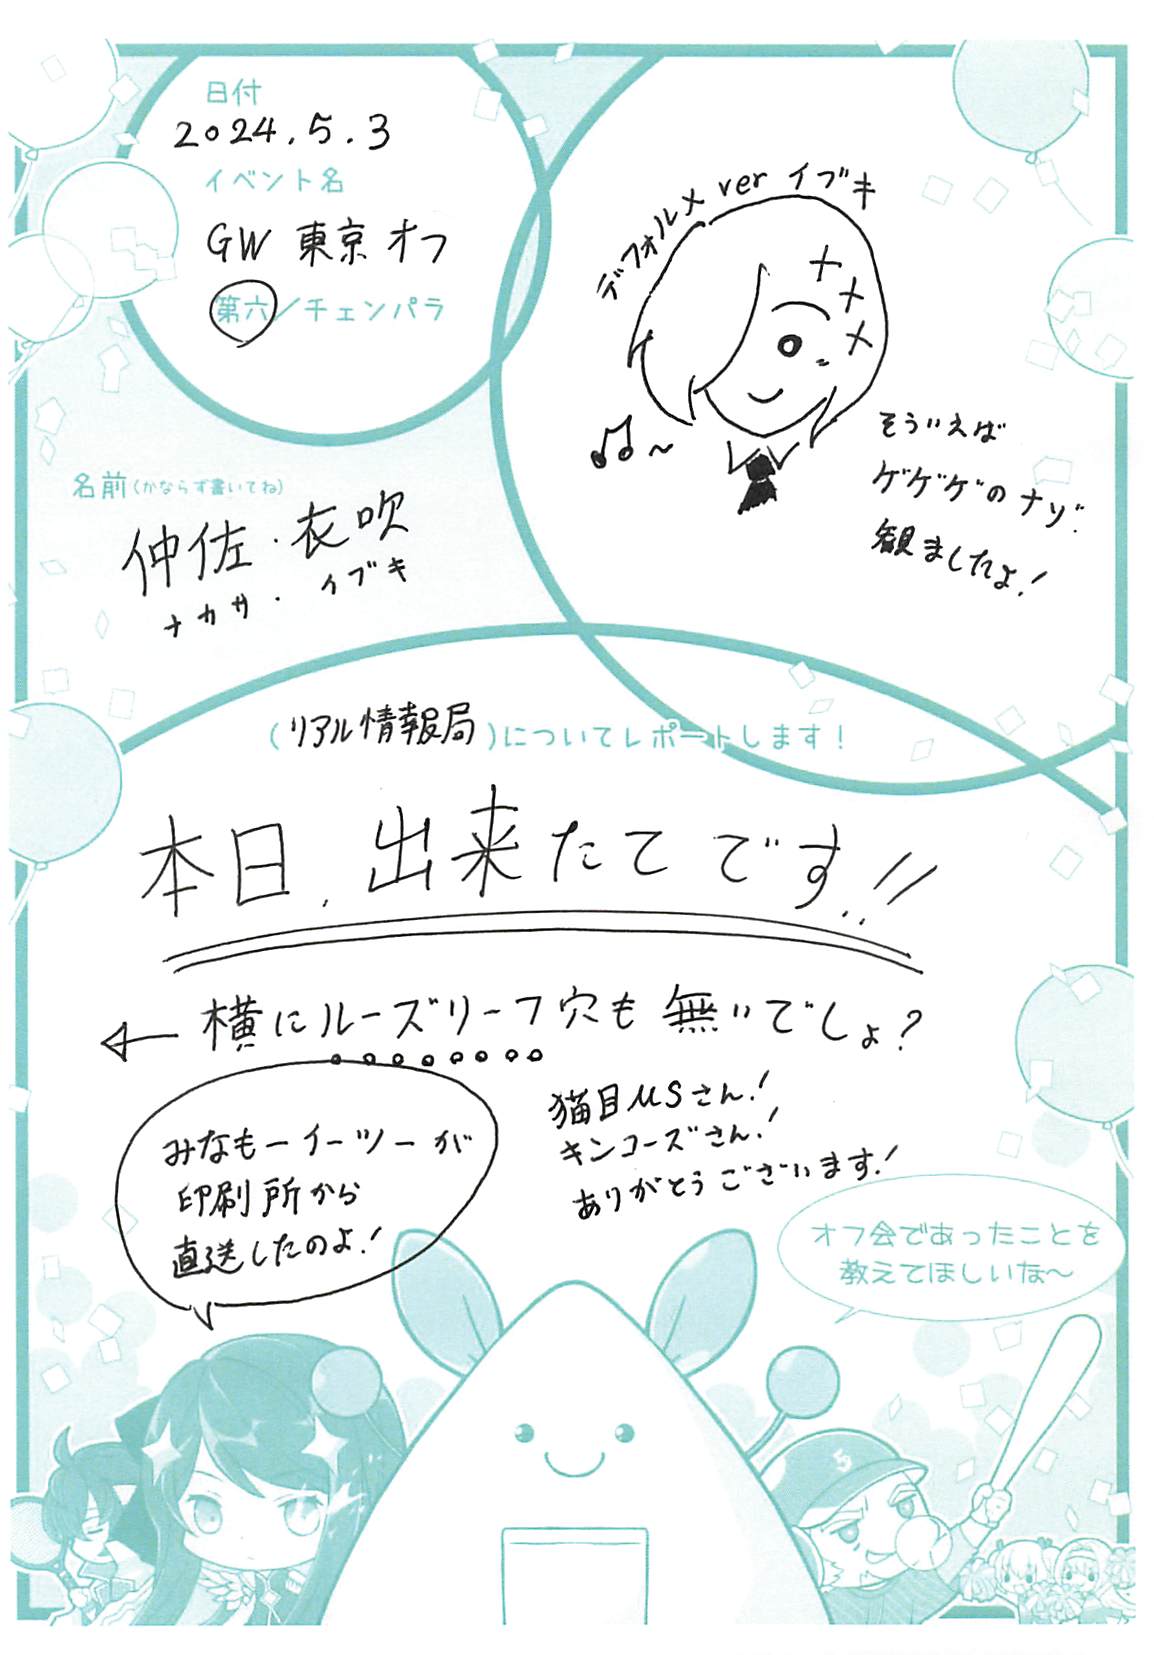 日付
2024.5.3
イベント名
GW 東京オフ
第六／チェンパラ
デフォルメ ver イブキ
そういえば
ゲゲゲのナゾ
観ましたよ!
名前(かならず書いてね)
仲佐・衣吹
ナカサ・イブキ
(リアル情報局)についてレポートします!
本日、出来たてです!!
←横にルーズリーフ穴も無いでしょ?
みなもーイーツーが
印刷所から
直送したのよ!
猫目μSさん!
キンコーズさん!
ありがとうございます!
オフ会であったことを
教えてほしいな〜